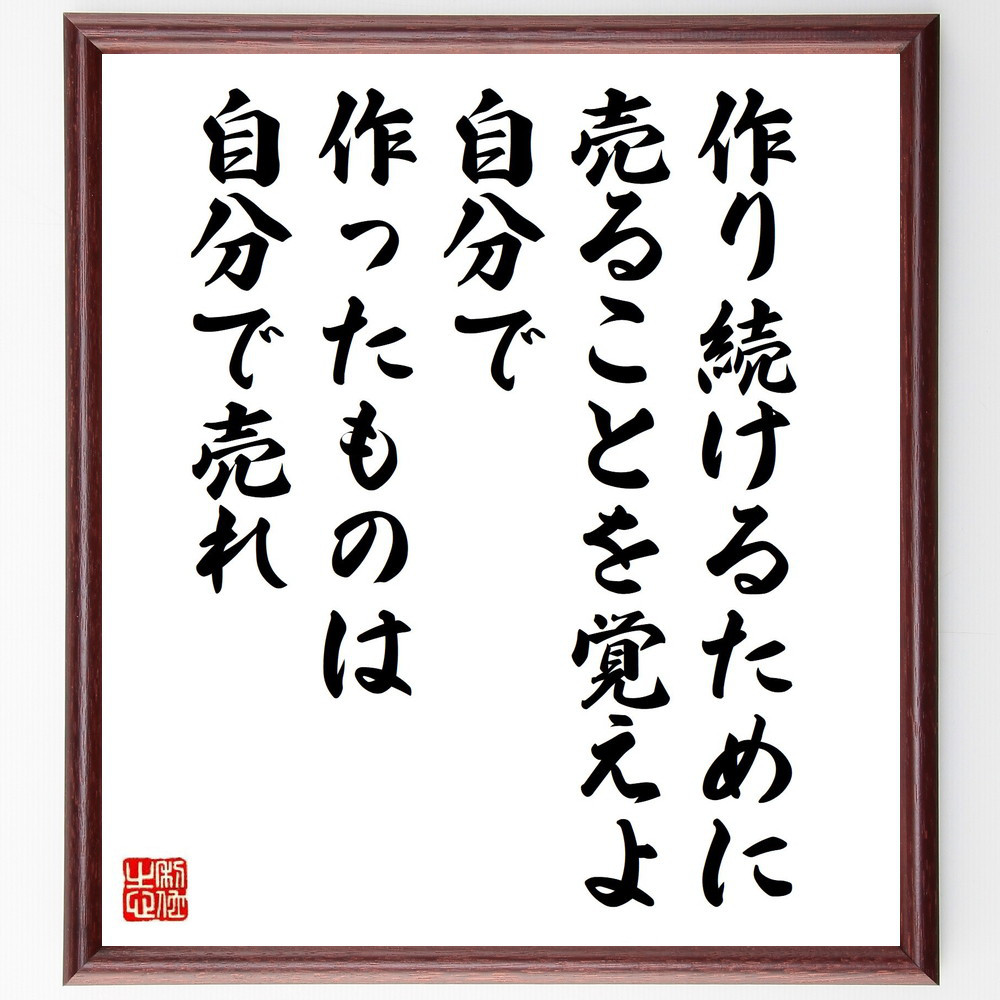 作り続けるために
売ることを覚えよ
自分で
作ったものは
自分で売れ